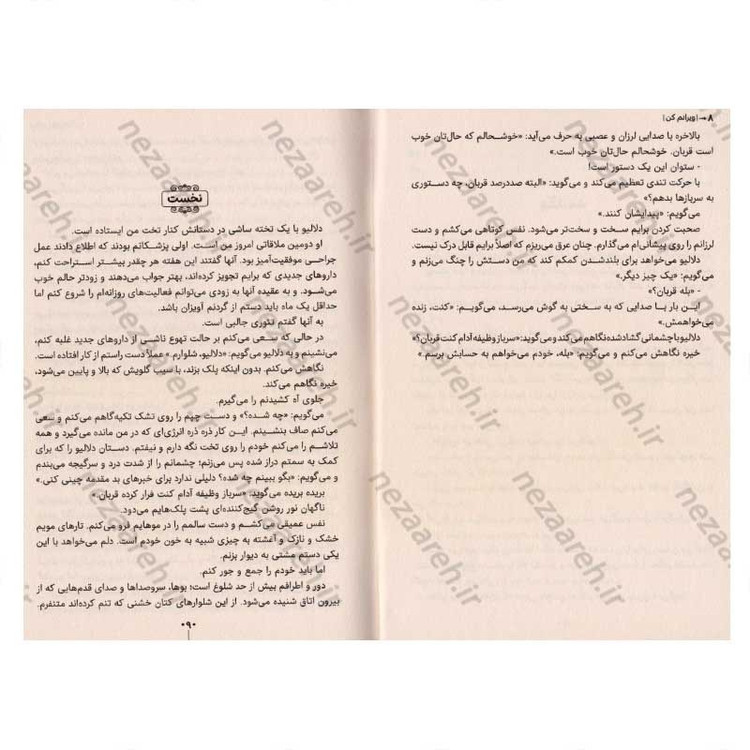 ۸ → | ویرانم کن |
بالاخره با صدایی لرزان و عصبی به حرف می‌آید: «خوشحالم که حال‌تان خوب
است قربان. خوشحالم حال‌تان خوب است.»
- ستوان این یک دستور است!
با حرکت تندی تعظیم می‌کند و می‌گوید: «البته صددرصد قربان، چه دستوری
به سربازها بدهم؟»
می‌گویم: «پیدایشان کنند.»
صحبت کردن برایم سخت و سخت‌تر می‌شود. نفس کوتاهی می‌کشم و دست
لرزانم را روی پیشانی‌ام می‌گذارم. چنان عرق می‌ریزم که اصلاً برایم قابل درک نیست.
دلالیو می‌خواهد برای بلندشدن کمکم کند که من دستش را چنگ می‌زنم و
می‌گویم: «یک چیز دیگر.»
- «بله قربان؟»
این بار با صدایی که به سختی به گوش می‌رسد، می‌گویم: «کنت، زنده
می‌خواهمش.»
دلالیو با چشمانی گشاد شده نگاهم می‌کند و می‌گوید: «سرباز وظیفه آدام کنت قربان؟»
خیره نگاهش می‌کنم و می‌گویم: «بله، خودم می‌خواهم به حسابش برسم.»
نخست
دلالیو با یک تخته شاسی در دستانش کنار تخت من ایستاده است.
او دومین ملاقاتی امروز من است. اولی پزشکانم بودند که اطلاع دادند عمل
جراحی موفقیت‌آمیز بود. آنها گفتند این هفته هر چقدر بیشتر استراحت کنم،
داروهای جدیدی که برایم تجویز کرده‌اند، بهتر جواب می‌دهند و زودتر حالم خوب
می‌شود. و به عقیده آنها به زودی می‌توانم فعالیت‌های روزانه‌ام را شروع کنم اما
حداقل یک ماه باید دستم از گردنم آویزان باشد.
به آنها گفتم تئوری جالبی است.
در حالی که سعی می‌کنم بر حالت تهوع ناشی از داروهای جدید غلبه کنم،
می‌نشینم و به دلالیو می‌گویم: «دلالیو، شلوارم.» عملاً دست راستم از کار افتاده است.
نگاهش می‌کنم. بدون اینکه پلک بزند، با سیب گلویش که بالا و پایین می‌شود،
خیره نگاهم می‌کند.
جلوی آه کشیدنم را می‌گیرم.
می‌گویم: «چه شده؟» و دست چپم را روی تشک تکیه‌گاهم می‌کنم و سعی
می‌کنم صاف بنشینم. این کار ذره ذره انرژی‌ای که در من مانده می‌گیرد و همه
تلاشم را می‌کنم خودم را روی تخت نگه دارم و نیفتم. دستان دلالیو را که برای
کمک به سمتم دراز شده پس می‌زنم؛ چشمانم را از شدت درد و سرگیجه می‌بندم
و می‌گویم: «بگو ببینم چه شده؟ دلیلی ندارد برای خبرهای بد مقدمه چینی کنی.»
بریده بریده می‌گوید، «سرباز وظیفه آدام کنت فرار کرده قربان.»
ناگهان نور روشن گیج‌کننده‌ای پشت پلک‌هایم می‌دود.
نفس عمیقی می‌کشم و دست سالمم را در موهایم فرو می‌کنم. تارهای مویم
خشک و نازک و آغشته به چیزی شبیه به خون خودم است. دلم می‌خواهد با این
یکی دستم مشتی به دیوار بزنم.
اما باید خودم را جمع و جور کنم.
دور و اطرافم بیش از حد شلوغ است؛ بوها، سروصداها و صدای قدم‌هایی که از
بیرون اتاق شنیده می‌شود. از این شلوارهای کتان خشنی که تنم کرده‌اند متنفرم.
۰۹۰
nezaareh.ir
nezaareh.ir
nezaareh.ir
nezaareh.ir
nezaareh.ir
nezaareh.ir